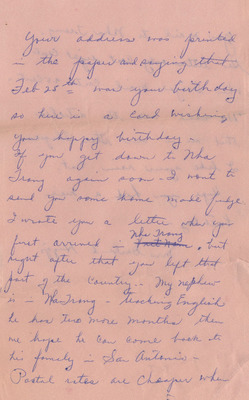 Your address was printed
in the paper and saying that
Feb 25th was your birthday
so here is a card wishing
you happy birthday -
If you get down to Nha
Trang again soon - I want to
send you some home made fudge
I wrote you a letter when you
Nha Trang
first arrived in , but
right after that you left that
part of the country - My nephew
is in Nha Trang - teaching English
he has two more months then
we hope he can come back to
his family in San Antonio -
Postal rates are cheaper when